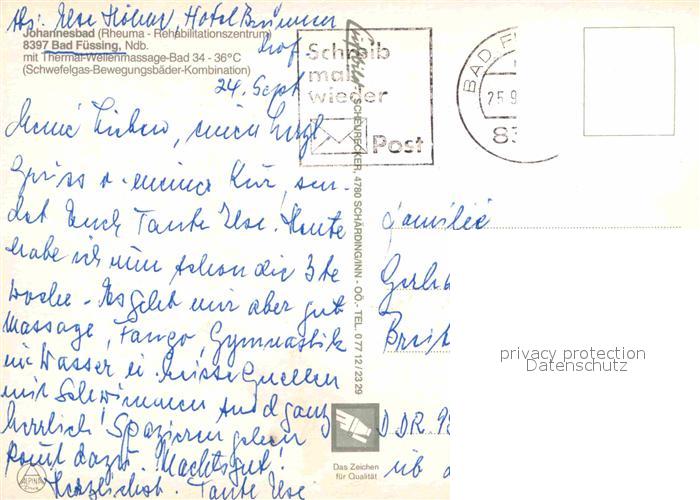 Abs: Ilse Höhne, Hotel Brunnenhof
Johannesbad (Rheuma - Rehabilitationszentrum)
8397 Bad Füssing, Ndb.
mit Thermal-Wellenmassage-Bad 34 - 36°C
(Schwefelgas-Bewegungsbäder-Kombination)
24. Sept
Meine Lieben, einen herzl
Gruss v. meiner Kur, sen-
det Euch Tante Ilse. Heute
habe ich nun schon die 3te
Woche. Es geht mir aber gut
Massage, Fango, Gymnastik
im Wasser
mit Schwimmen sind ganz
herrlich. Spazieren gehen
kommt dazu. Machts gut!
Herzlichst. Tante Ilse
ALPINA
Luftbild
SCHEURECKER, 4780 SCHÄRDING/INN - OÖ. - TEL. 0 77 12 / 23 29
Schreib
mal
wieder
Post
BAD F
25.9
83
Familie
Gerh
Breit
DDR 9
üb
Das Zeichen
für Qualität
privacy protection
Datenschutz